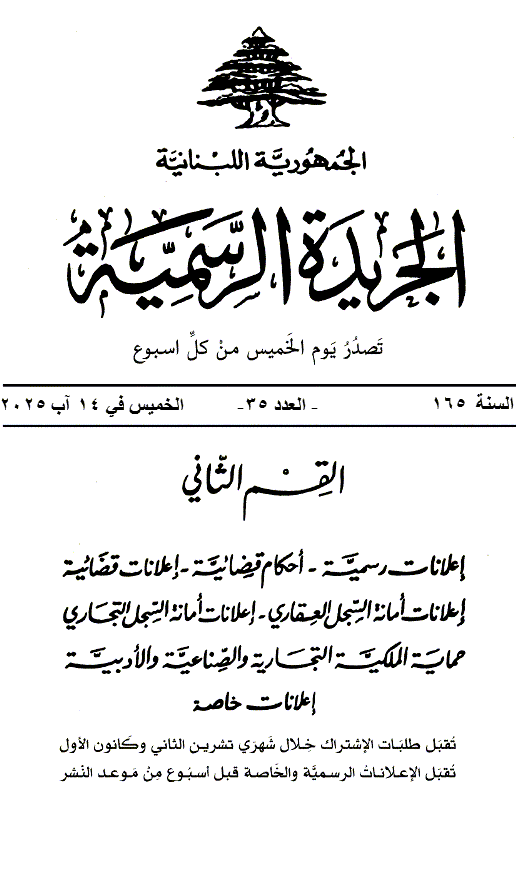 الجمهورية اللبنانية
الجريدة الرسمية
تَصدُرُ يَوم الخَميس منْ كلِّ اسبوع
السنة ١٦٥ - العدد ٣٥- الخميس في ١٤ آب ٢٠٢٥
القِسْم الثّاني
إعلانات رسميَّة - أحكام قضائيَّة - إعلانات قضائية
إعلانات أمانة السِّجل العِقاري - إعلانات أمانة السِّجل التجاري
حماية الملكيَّة التجارية والصِّناعيَّة والأدبيَّة
إعلانات خاصة
تُقبَل طلبَات الإشتراك خِلال شَهرَي تشرين الثاني وكَانون الأول
تُقبَل الإعلاناتُ الرسميَّة والخَاصة قبل أسبُوع مِنْ مَوعد النّشر